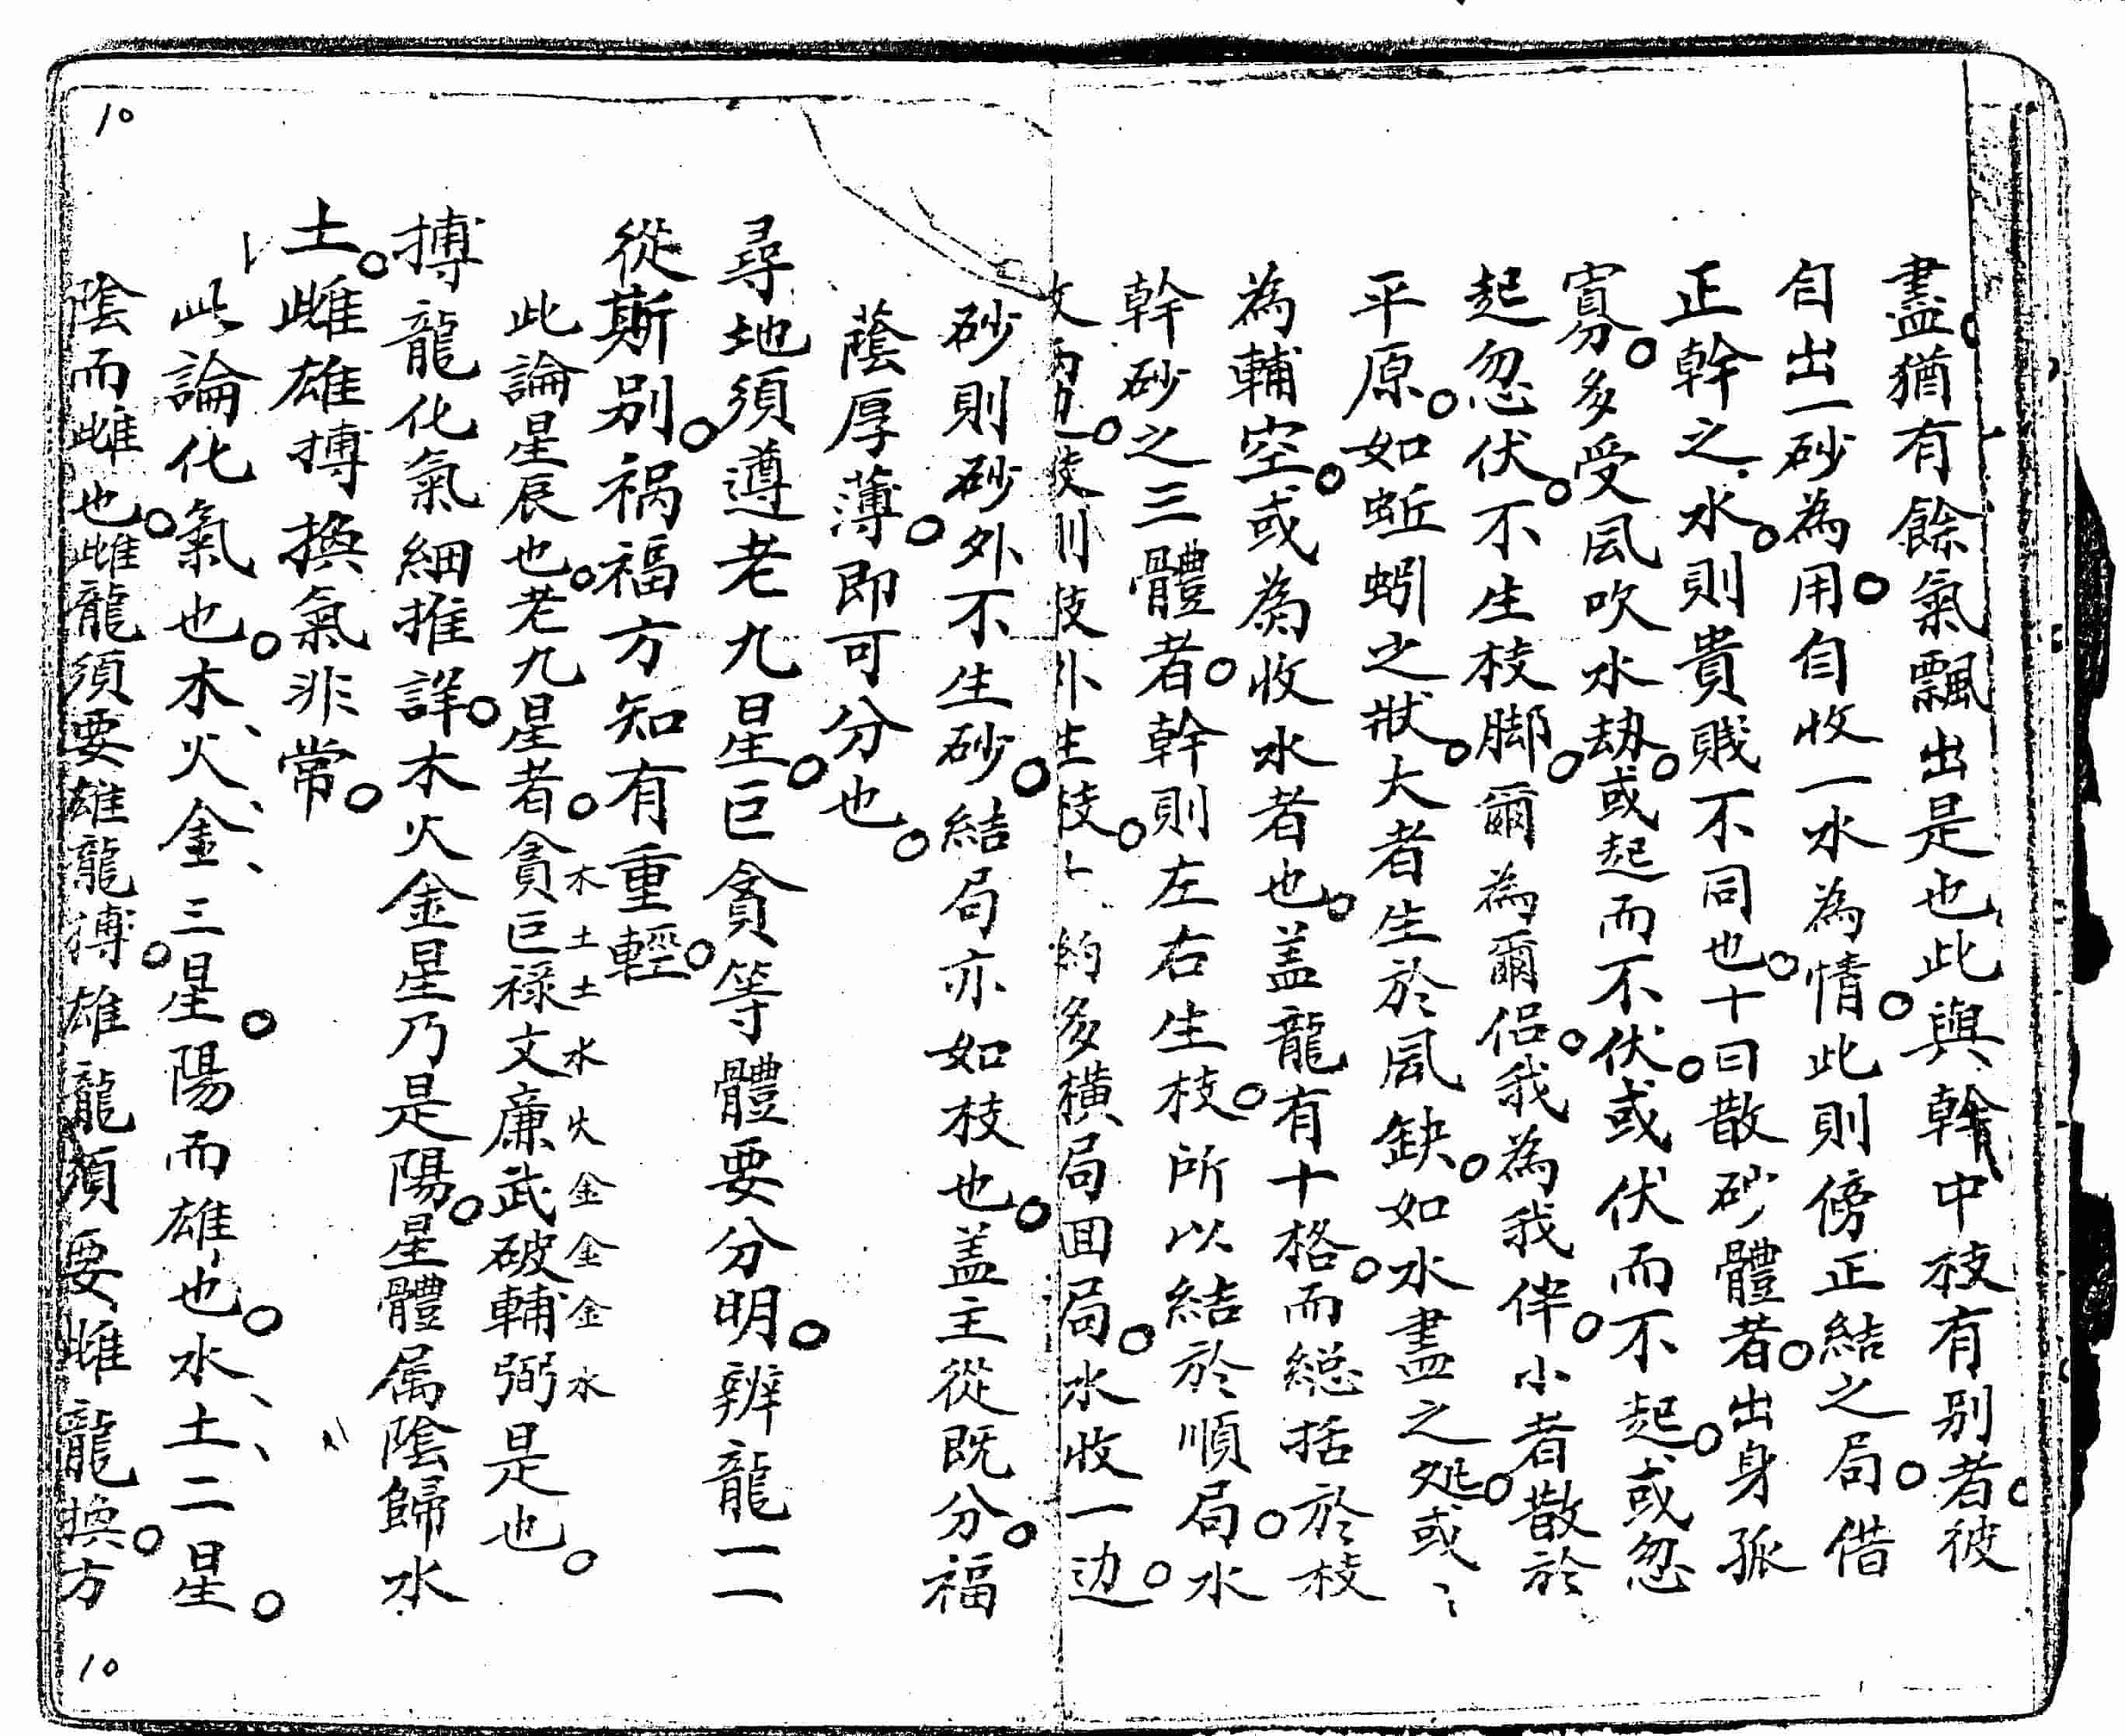 盡猶有餘氣飄出是也此與幹中枝有别者彼
自出一砂為用自收一水為情此則傍正結之局借
正幹之水則貴賎不同也十曰散砂體者出身孤
寡多受風吹水劫或起而不伏或伏而不起或忽
起忽伏不生枝脚爾為爾侣我為我伴小者散於
平原如蚯蚓之狀大者生於風缺如水盡之処或〻
為輔空或為收水者也盖龍有十格而総括於枝
幹砂之三體者幹則左右生枝所以結於順局水
枝則枝外生枝 約多横局囬局水收一边
砂則砂外不生砂結局亦如枝也盖主從既分福
蔭厚薄即可分也
尋地須遵老九星巨貪等體要分明辨龍一一
從斯别禍福方知有重輕
此論星辰也老九星者貪巨禄文廉武破輔弼是也
木土土水火金金金水
摶龍化氣細推詳木火金星乃是陽星體属陰歸水
土雌雄摶換氣非常
此論化氣也木火金三星陽而雄也水土二星
陰而雌也雌龍須要雄龍摶雄龍須要雌龍換方
10
10